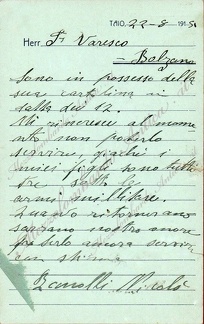 TAIO, 22-8-1915
Herr. F. Varesco
Bolzano
Sono in possesso della
sua cartolina in
data del 12.
Mi rincresce al momento
nto non poterlo
servire, giachi i
miei figli sono tutti
sotto le
armi militare.
Quando ritornerano
sarano nostro
poterlo ancora servire
con stima